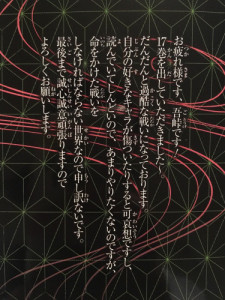 お疲れ様です、吾峠です。
17巻を出していただきました〜
だんだんと過酷な戦いになっております
自分の好きなキャラが傷ついたりすると可哀想ですし、
読んでいてしんどいので、あまりやりたくないのですが、
命をかけた戦いを
しなければならない世界なので申し訳ないです。
最後まで誠心誠意頑張りますので
よろしくお願いします。